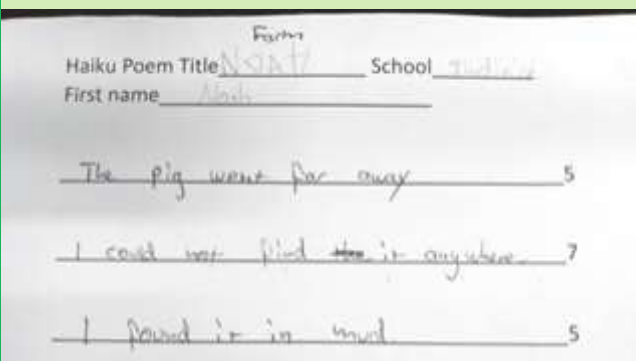 Farm
Haiku Poem Title NOAH School
First name Noah
The pig went far away 5
I could not find it anywhere 7
I found it in mud 5